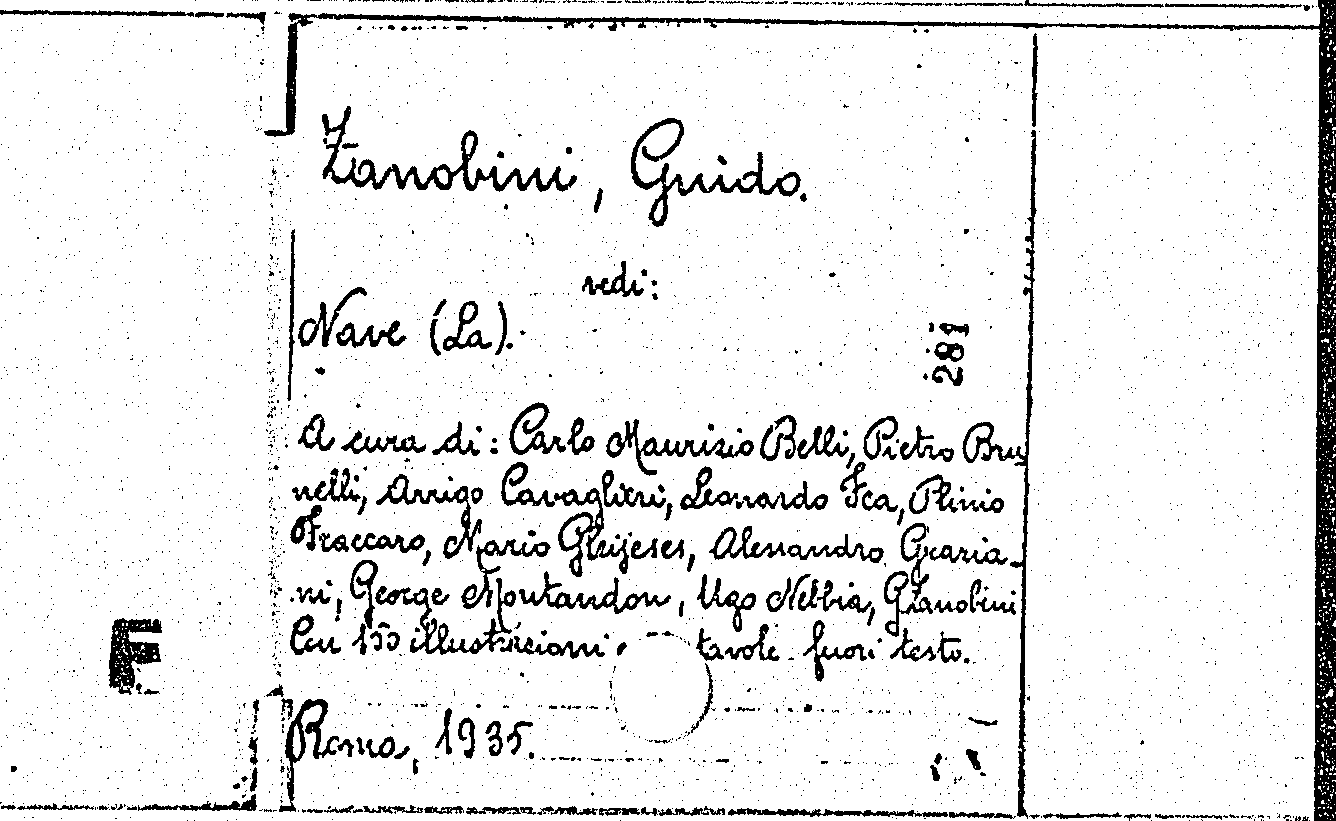 Zanobini, Guido.
vedi:
Nave (La).
281
A cura di: Carlo Maurizio Belli, Pietro Bru-
nelli, Arrigo Cavaglieri, Leonardo Fea, Plinio
Fraccaro, Mario Gleijeses, Alessandro Grazia-
ni, George Montandon, Ugo Nebbia, G Zanobini
Con 155 illustrazioni tavole fuori testo.
F
Roma, 1935.